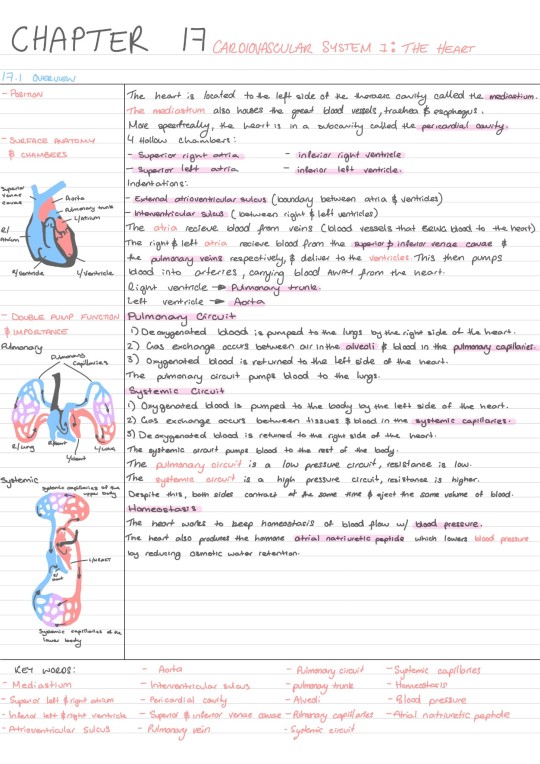 CHAPTER 17 CARDIOVASCULAR SYSTEM I: THE HEART
17.1 OVERVIEW
- POSITION
The heart is located to the left side of the thoracic cavity called the mediastium.
The mediastium also houses the great blood vessels, trachea & esophagus.
More specifically, the heart is in a subcavity called the pericardial cavity.
- SURFACE ANATOMY
& CHAMBERS
4 Hollow chambers:
- Superior right atria - inferior right ventricle
- Superior left atria - inferior left ventricle.
Indentations:
- External atrioventricular sulcus (boundary between atria & ventricles)
- Interventricular sulcus (between right & left ventricles)
The atria recieve blood from veins (blood vessels that BRING blood to the heart)
The right & left atria recieve blood from the superior & inferior venae cavae &
the pulmonary veins respectively, & deliver to the ventricles. This then pumps
blood into arteries, carrying blood AWAY from the heart.
Right ventricle → Pulmonary trunk.
Left ventricle → Aorta
Superior
venae
cavae
Aorta
Pulmonary trunk
L/atrium
R/
Atrium
R/Ventricle
L/Ventricle
- DOUBLE PUMP FUNCTION
& IMPORTANCE
Pulmonary Circuit
1) Deoxygenated blood is pumped to the lungs by the right side of the heart.
2) Gas exchange occurs between air in the alveoli & blood in the pulmonary capillaries.
3) Oxygenated blood is returned to the left side of the heart.
The pulmonary circuit pumps blood to the lungs.
Pulmonary
Pulmonary
Capillaries
R/Lung
R/heart
L/heart
L/Lung
Systemic Circuit
1) Oxygenated blood is pumped to the body by the left side of the heart.
2) Gas exchange occurs between tissues & blood in the systemic capillaries.
3) Deoxygenated blood is retured to the right side of the heart.
The systemic circuit pumps blood to the rest of the body.
The pulmonary circuit is a low pressure circuit, resistance is low.
The systemic circuit is a high pressure circuit, resistance is higher.
Despite this, both sides contract at the same time & eject the same volume of blood.
Homeostasis
The heart works to keep homeostasis of blood flow w/ blood pressure.
The heart also produces the hormone atrial natriuretic peptide which lowers blood pressure
by reducing osmotic water retention.
Systemic
Systemic capillaries of the
upper body
L/HEART
R/
Heart
Systemic capillaries of the
lower body
KEY WORDS:
- Mediastium
- Superior left & right atrium
- Inferior left & right ventricle
- Atrioventricular sulcus
- Aorta
- Interventricular sulcus
- Pericardial cavity
- Superior & inferior venae cavae
- Pulmonary vein
- Pulmonary circuit
- pulmonary trunk
- Alveoli
- Pulmonary capillaries
- Systemic circuit
- Systemic capillaries
- Homeostasis
- Blood pressure
- Atrial natriuretic peptide